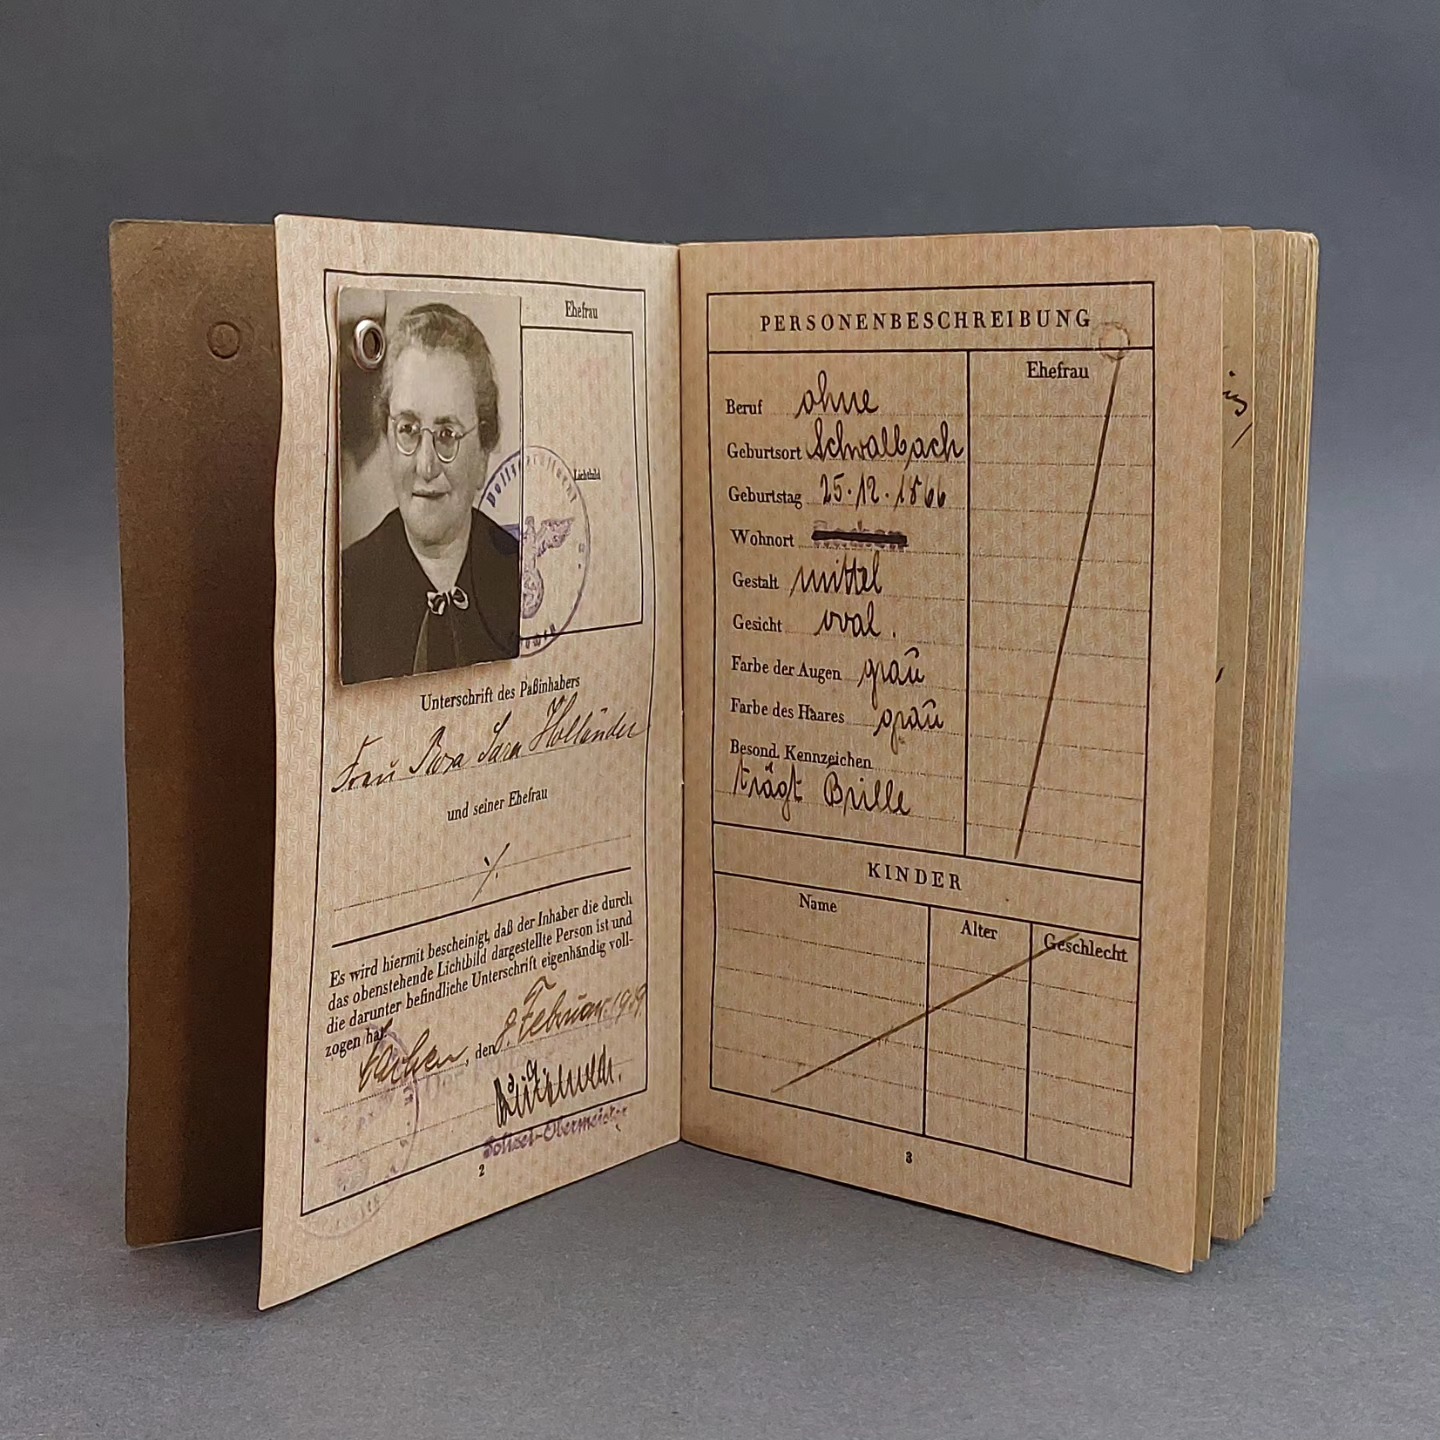 Ehefrau
Lichtbild
Unterschrift des Paßinhabers
Frau Rosa Sara Holländer
und seiner Ehefrau
Es wird hiermit bescheinigt, daß der Inhaber die durch
das obenstehende Lichtbild dargestellte Person ist und
die darunter befindliche Unterschrift eigenhändig voll-
zogen hat.
Aachen, den 9. Februar 1939
Polizei-Obermeister
2
PERSONENBESCHREIBUNG
Ehefrau
Beruf ohne
Geburtsort Schwalbach
Geburtstag 25.12.1866
Wohnort
Gestalt mittel
Gesicht oval.
Farbe der Augen grau
Farbe des Haares grau
Besond. Kennzeichen
trägt Brille
KINDER
Name Alter Geschlecht
3